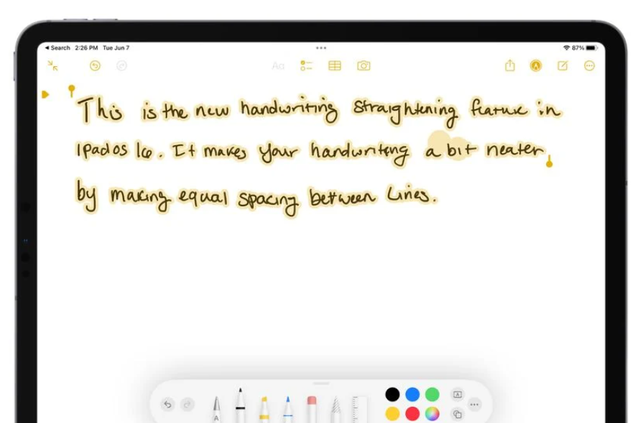 ◀ Search 2:26 PM Tue Jun 7 87%
Aa
This is the new handwriting straightening feature in
ipados 16. It makes your handwriting a bit neater
by making equal spacing between lines.
A